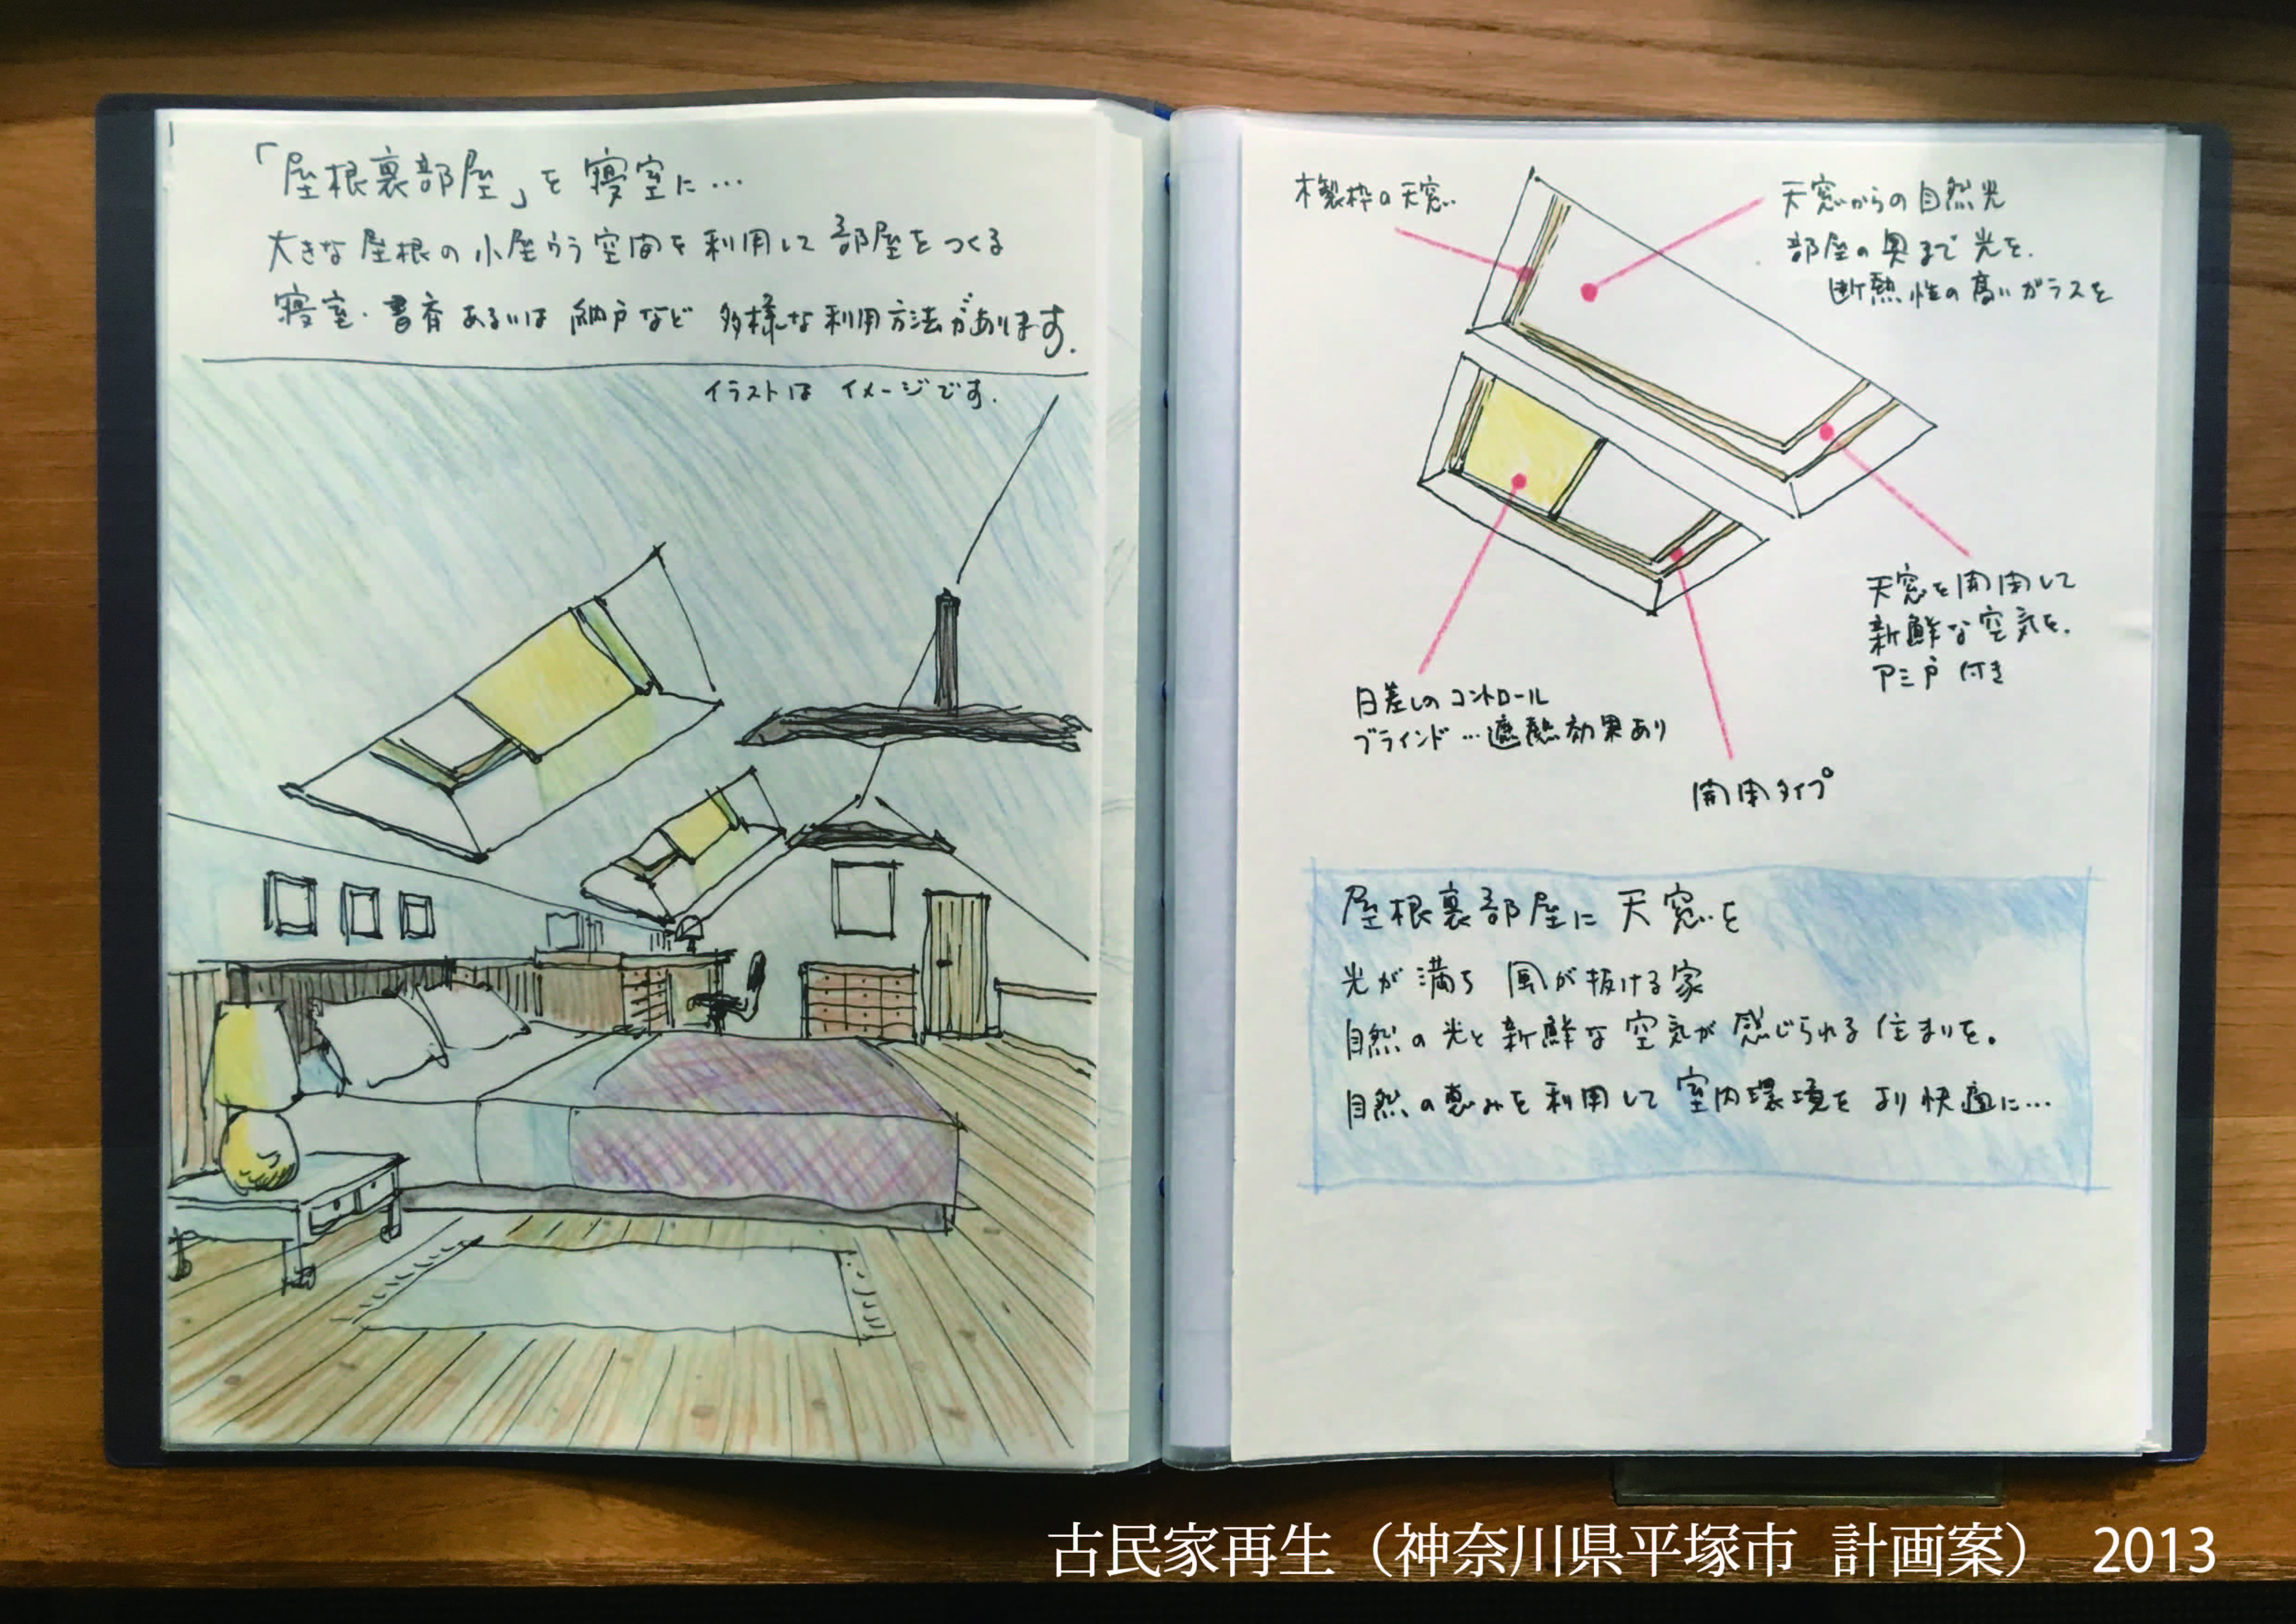 「屋根裏部屋」を寝室に…
大きな屋根の小屋うら空間を利用して部屋をつくる
寝室・書斎あるいは納戸など多様な利用方法があります.
イラストは イメージです.
木製枠の天窓
天窓からの自然光
部屋の奥まで光を.
断熱性の高いガラスを
天窓を開閉して
新鮮な空気を.
アミ戸付き
日差しのコントロール
ブラインド…遮熱効果あり
開閉タイプ
屋根裏部屋に天窓を
光が満ち 風が抜ける家
自然の光と新鮮な空気が感じられる住まいを。
自然の恵みを利用して室内環境をより快適に…
古民家再生（神奈川県平塚市 計画案） 2013